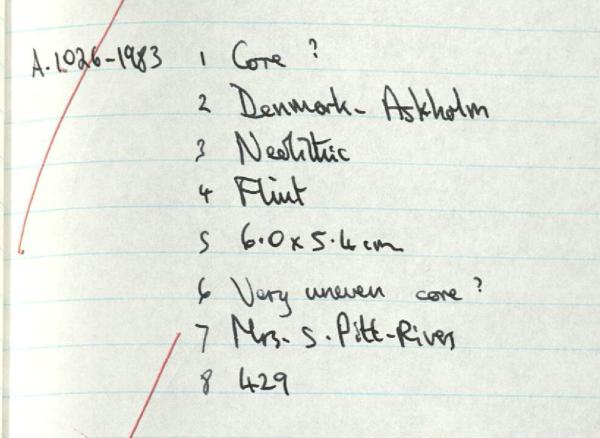 A.1026-1983 1 Core ?
2 Denmark- Askholm
3 Neolithic
4 Flint
5 6.0 x 5.4 cm
6 Very uneven core ?
7 Mrs. S. Pitt-Rivers
8 429